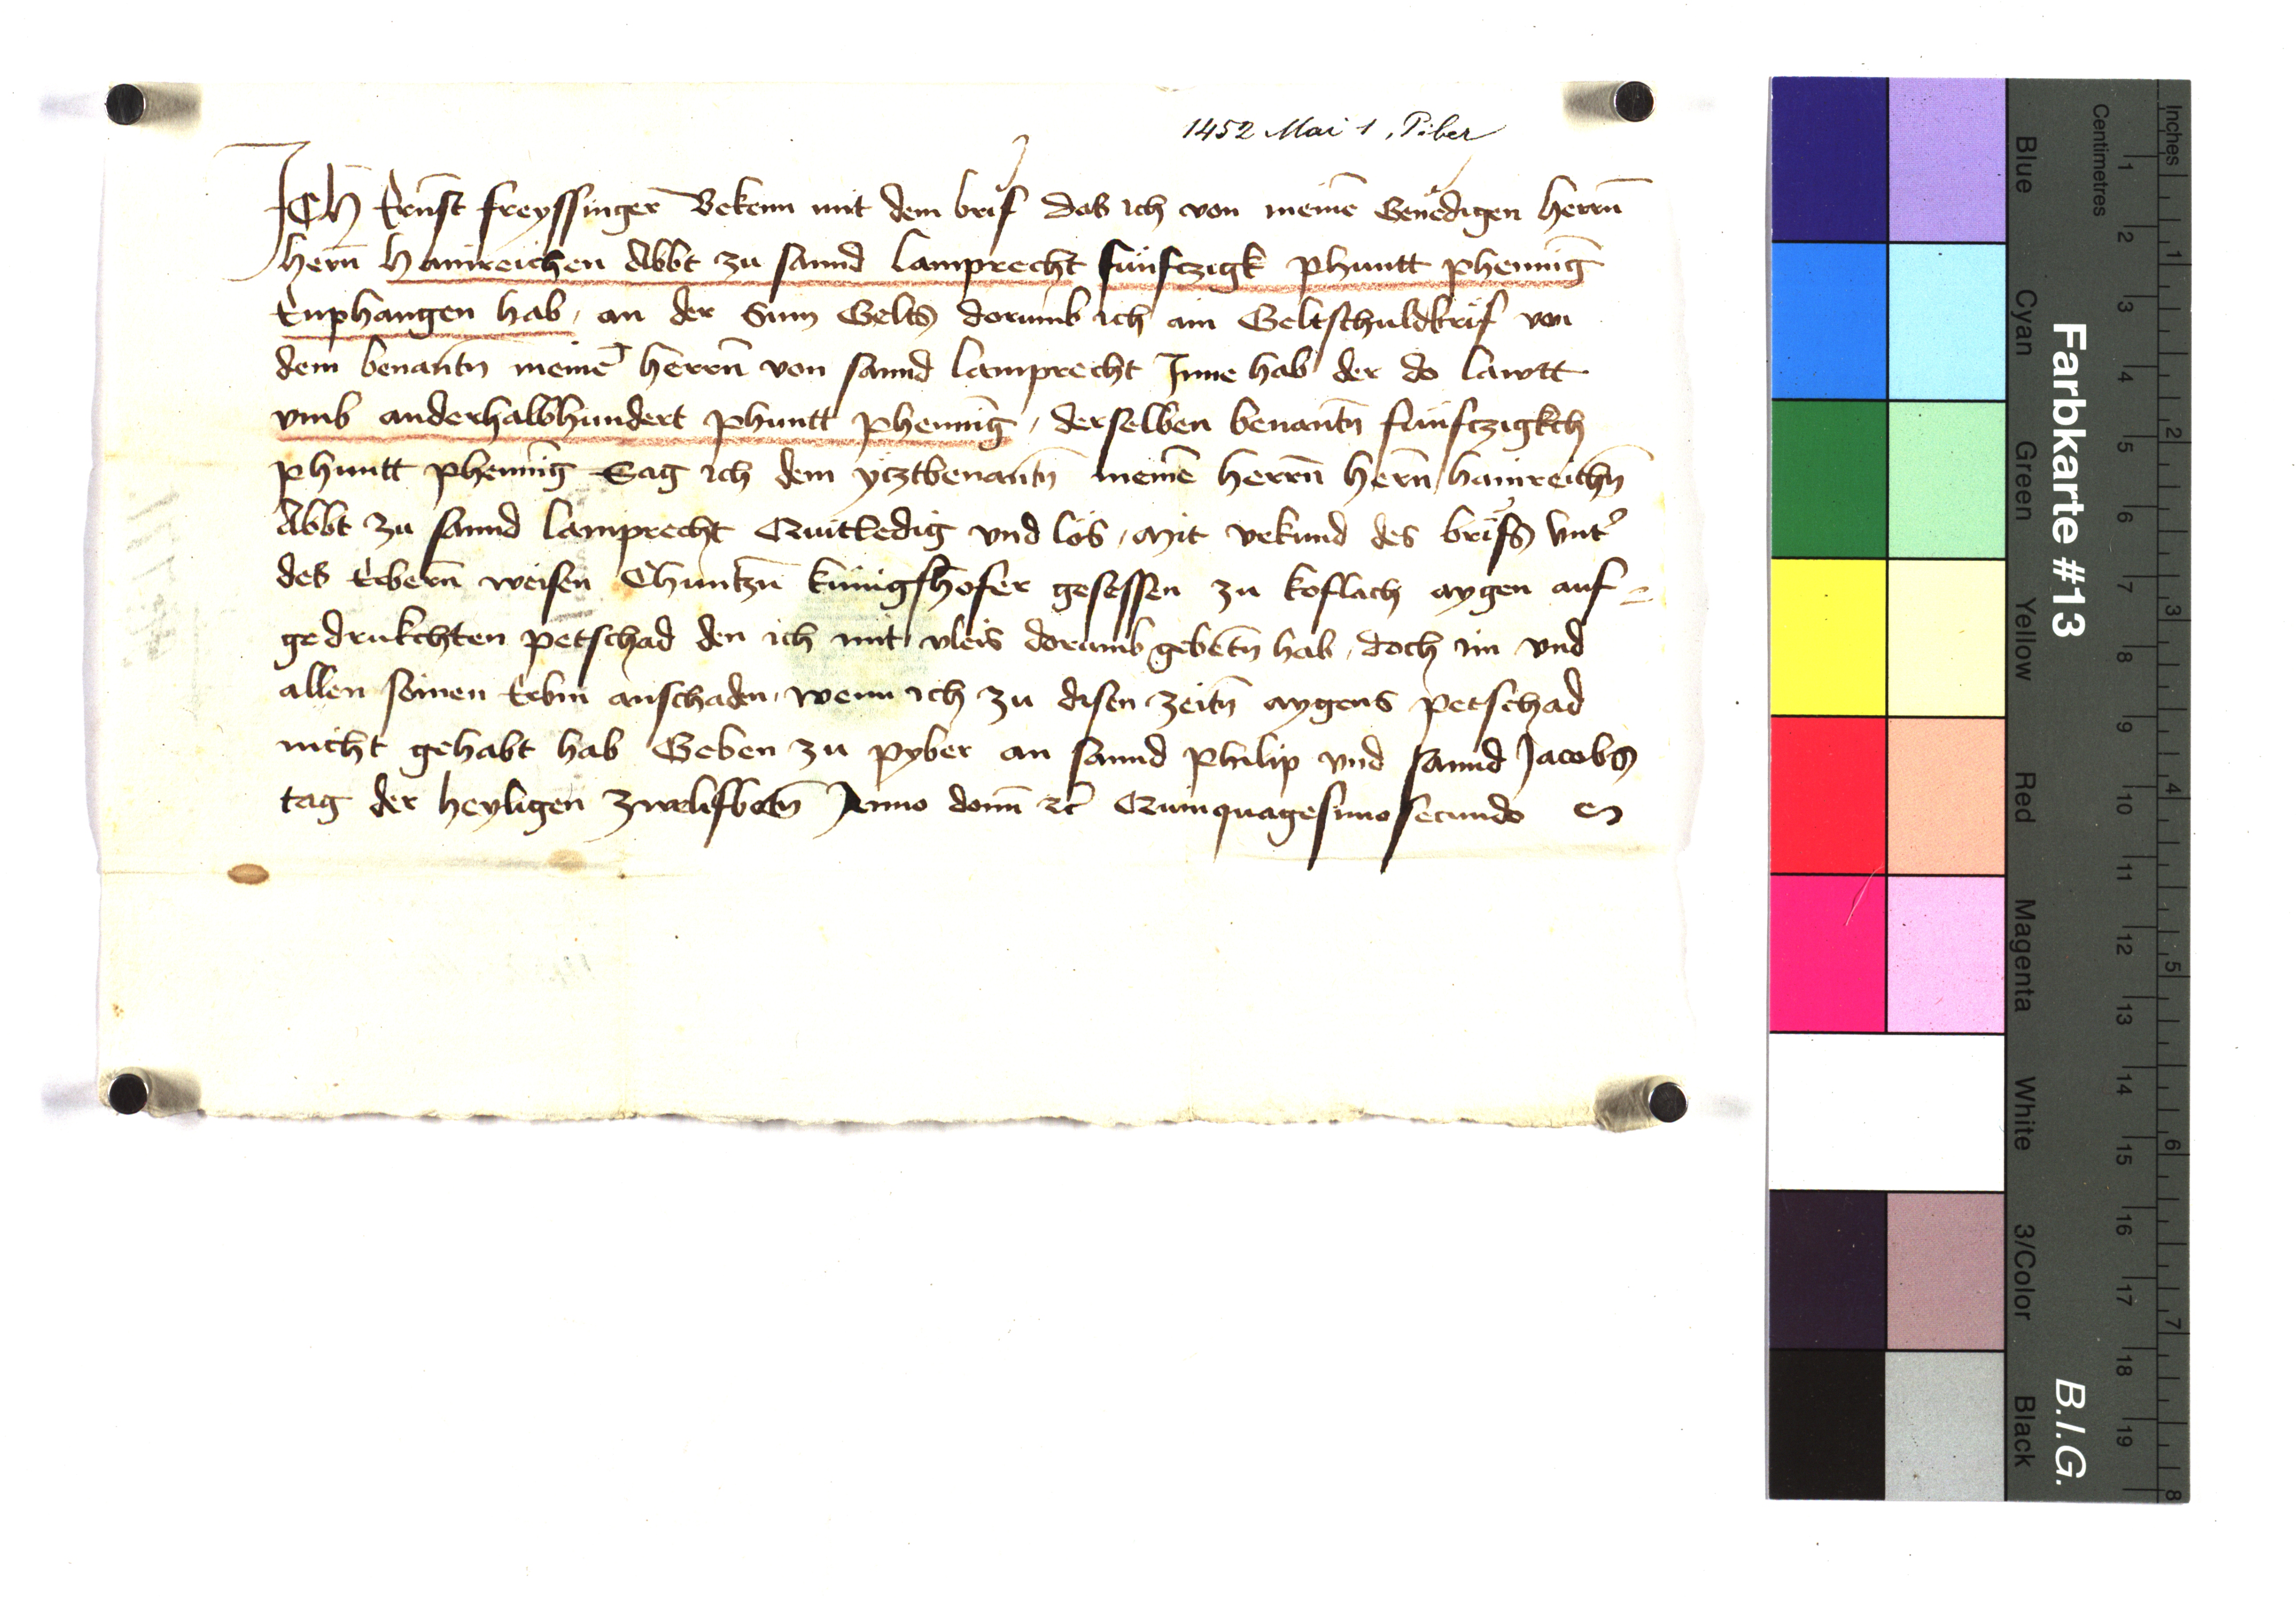 1452 Mai 1, Piber
Ich Ernst freyssinger Bekenn mit dem brif das ich von meinē Genedigen herrn̄
hern̄ hainreichen Abbt zu sannd lamprecht fünfczigk phuntt phennīg
Enphangen hab, an der Sum Gelts dorumb ich ain Geltschuldbrif von
dem benantn̄ meinē herrn̄ von sannd lamprecht Inne hab der do lawtt
vmb anderhalbhundert phuntt phennīg, derselben benantn̄ fünfczigkch
phuntt phennīg Sag ich dem yeztbenantn̄ meinē herrn̄ hern̄ hainreichn̄
Abbt zu sannd lamprecht Quitledig vnd los, Mit vrkund des brifs vnt᾽
des Erbern̄ weisen Chuntzn̄ künigshofer gesessen zu koflach aygen auf=
gedrukchten petschad den ich mit vleis dorumb gebetn̄ hab, doch im vnd
allen seinen Erbm anschaden, wenn ich zu disen zeitn̄ aygens petschad
nicht gehabt hab Geben zu pyber an sannd philip vnd sannd Jacobs
tag der heyligen zwelfbotn̄ Anno dom̄ ꝛc̄ Quinquagesimosecundo
Inches
Centimetres
Farbkarte #13
B.I.G.
Blue
Cyan
Green
Yellow
Red
Magenta
White
3/Color
Black
1 2 3 4 5 6 7 8 9 10 11 12 13 14 15 16 17 18 19
1 2 3 4 5 6 7 8